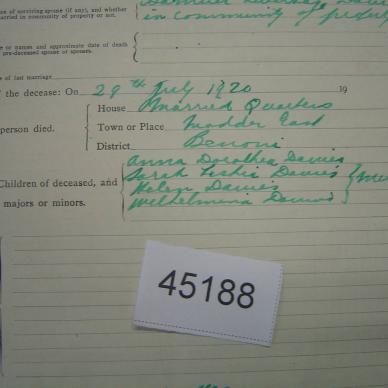 me of surviving spouse (if any), and whether
arried in community of property or not.
in community of
e or names and approximate date of death
pre-deceased spouse or spouses.
e of last marriage
the decease: On 29th July 1920 19
House Married Quarters
person died. Town or Place Modder East
District Benoni
Anna Dorothea Davies
Children of deceased, and Sarah Leslie Davies
majors or minors. Helen Davies
Wilhelmina Davies
45188